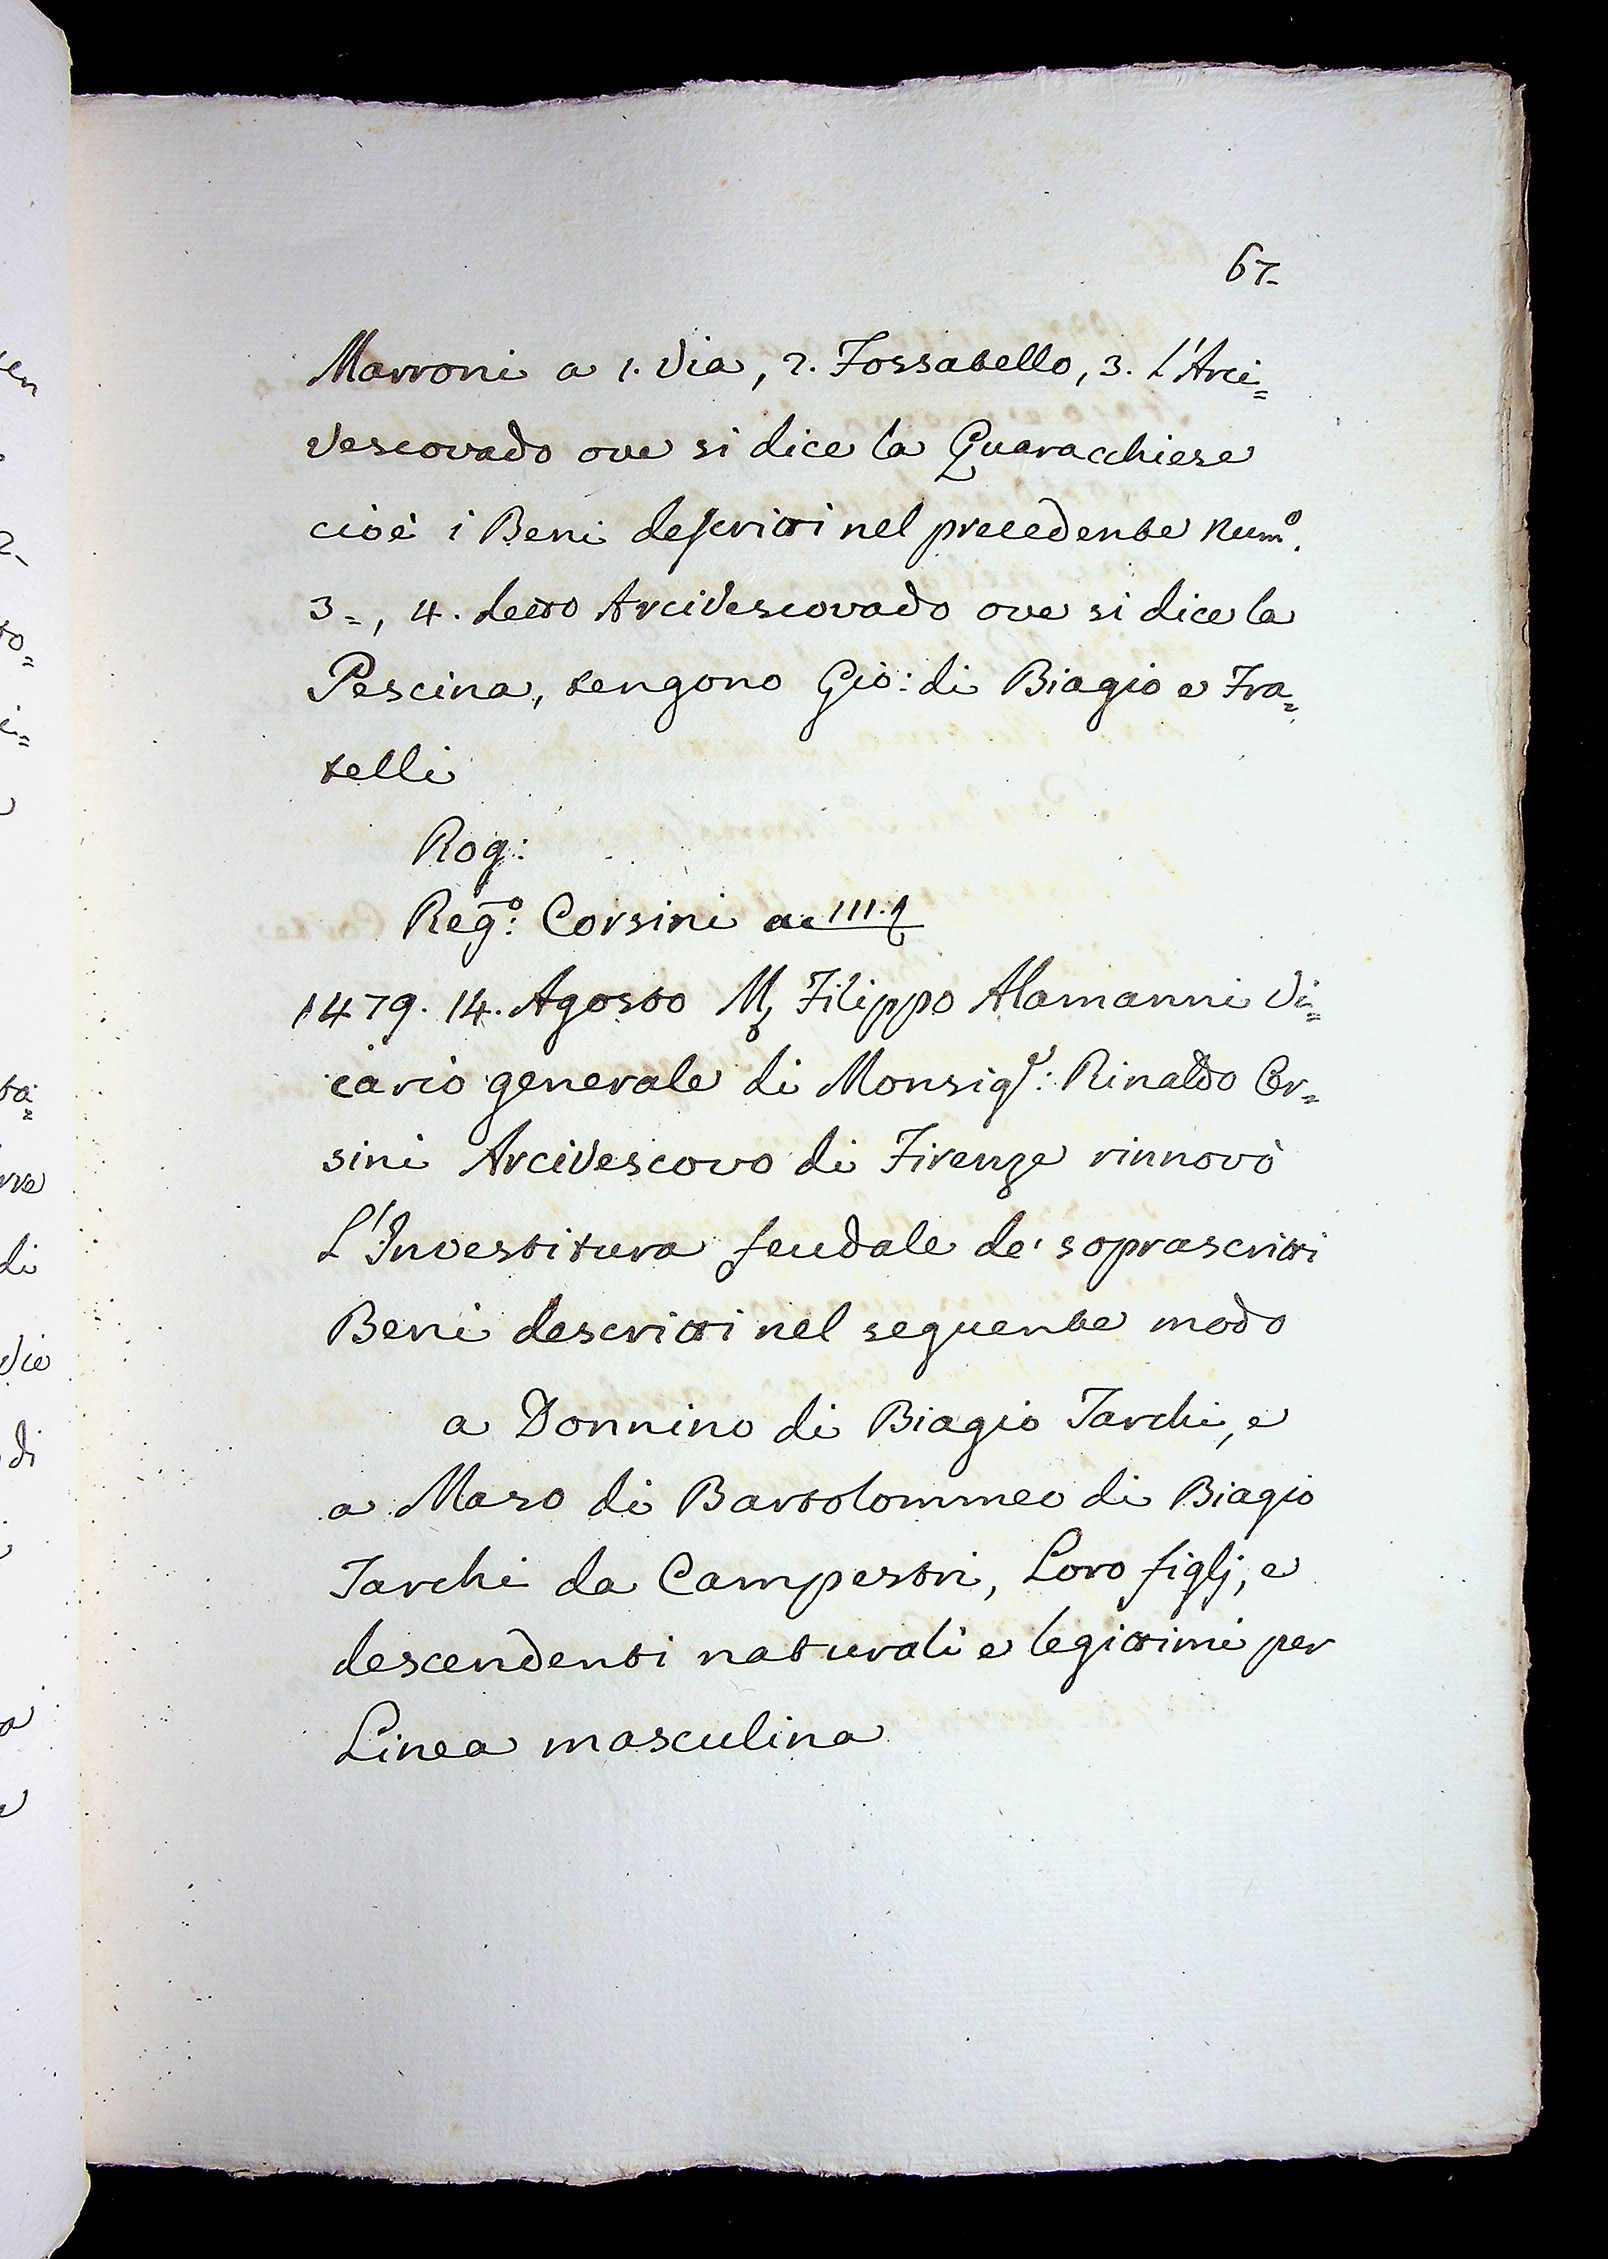 67.
Marroni a 1. Via, 2. Fossatello, 3. L'Arci=
vescovado ove si dice la Quaracchiese
cioè i Beni descritti nel precedente Num.º
3=, 4. detto Arcivescovado ove si dice la
Pescina, tengono Gio: di Biagio e Fra=
telli
Rog:
Reg.º: Corsini a c 111.
1479. 14. Agosto M. Filippo Alamanni Vi=
cario generale di Monsig.r: Rinaldo Or=
sini Arcivescovo di Firenze rinnovò
L'Investitura feudale de' soprascritti
Beni descritti nel seguente modo
a Donnino di Biagio Tarchi, e
a Maso di Bartolommeo di Biagio
Tarchi da Campestri, Loro figlj, e
descendenti naturali e legittimi per
Linea masculina